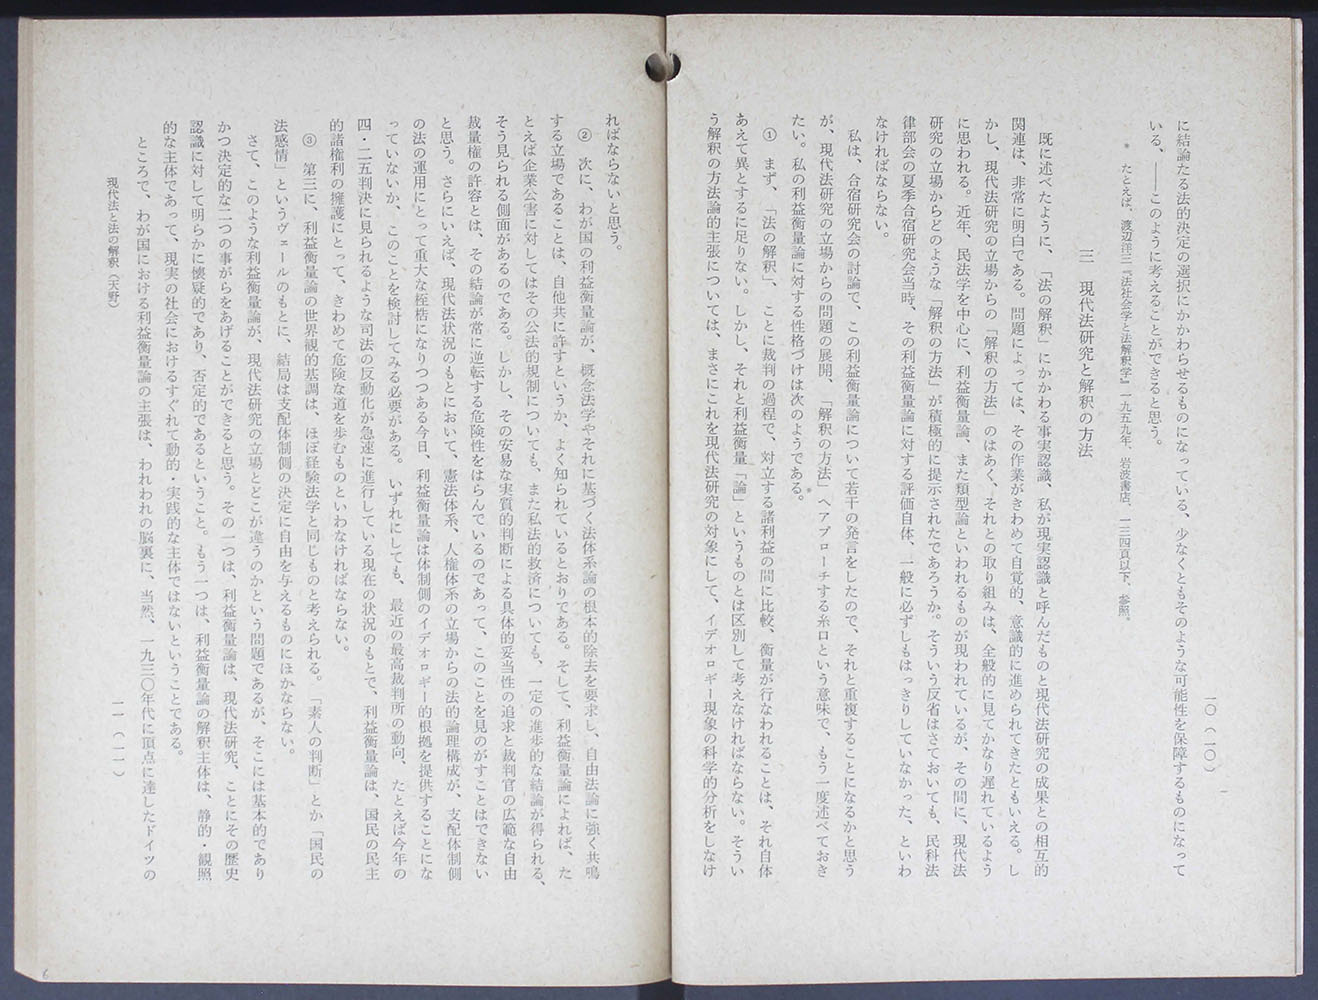 一〇（一〇）
に結論たる法的決定の選択にかかわらせるものになっている、少なくともそのような可能性を保障するものになって
いる、――このように考えることができると思う。
＊ たとえば、渡辺洋三『法社会学と法解釈学』一九五九年、岩波書店、一三四頁以下、参照。
三 現代法研究と解釈の方法
既に述べたように、「法の解釈」にかかわる事実認識、私が現実認識と呼んだものと現代法研究の成果との相互的
関連は、非常に明白である。問題によっては、その作業がきわめて自覚的、意識的に進められてきたともいえる。し
かし、現代法研究の立場からの「解釈の方法」のはあく、それとの取り組みは、全般的に見てかなり遅れているよう
に思われる。近年、民法学を中心に、利益衡量論、また類型論といわれるものが現われているが、その間に、現代法
研究の立場からどのような「解釈の方法」が積極的に提示されたであろうか。そういう反省はさておいても、民科法
律部会の夏季合宿研究会当時、その利益衡量論に対する評価自体、一般に必ずしもはっきりしていなかった、といわ
なければならない。
私は、合宿研究会の討論で、この利益衡量論について若干の発言をしたので、それと重複することになるかと思う
が、現代法研究の立場からの問題の展開、「解釈の方法」へアプローチする糸口という意味で、もう一度述べておき
たい。私の利益衡量論に対する性格づけは次のようである。
① まず、「法の解釈」、ことに裁判の過程で、対立する諸利益の間に比較、衡量が行なわれることは、それ自体
あえて異とするに足りない。しかし、それと利益衡量「論」というものとは区別して考えなければならない。そうい
う解釈の方法論的主張については、まさにこれを現代法研究の対象にして、イデオロギー現象の科学的分析をしなけ
ればならないと思う。
② 次に、わが国の利益衡量論が、概念法学やそれに基づく法体系論の根本的除去を要求し、自由法論に強く共鳴
する立場であることは、自他共に許すというか、よく知られているとおりである。そして、利益衡量論によれば、た
とえば企業公害に対してはその公法的規制についても、また私法的救済についても、一定の進歩的な結論が得られる、
そう見られる側面があるのである。しかし、その安易な実質的判断による具体的妥当性の追求と裁判官の広範な自由
裁量権の許容とは、その結論が常に逆転する危険性をはらんでいるのであって、このことを見のがすことはできない
と思う。さらにいえば、現代法状況のもとにおいて、憲法体系、人権体系の立場からの法的論理構成が、支配体制側
の法の運用にとって重大な桎梏になりつつある今日、利益衡量論は体制側のイデオロギー的根拠を提供することにな
っていないか、このことを検討してみる必要がある。いずれにしても、最近の最高裁判所の動向、たとえば今年の
四・二五判決に見られるような司法の反動化が急速に進行している現在の状況のもとで、利益衡量論は、国民の民主
的諸権利の擁護にとって、きわめて危険な道を歩むものといわなければならない。
③ 第三に、利益衡量論の世界観的基調は、ほぼ経験法学と同じものと考えられる。「素人の判断」とか「国民の
法感情」というヴェールのもとに、結局は支配体制側の決定に自由を与えるものにほかならない。
さて、このような利益衡量論が、現代法研究の立場とどこが違うのかという問題であるが、そこには基本的であり
かつ決定的な二つの事がらをあげることができると思う。その一つは、利益衡量論は、現代法研究、ことにその歴史
認識に対して明らかに懐疑的であり、否定的であるということ。もう一つは、利益衡量論の解釈主体は、静的・観照
的な主体であって、現実の社会におけるすぐれて動的・実践的な主体ではないということである。
ところで、わが国における利益衡量論の主張は、われわれの脳裏に、当然、一九三〇年代に頂点に達したドイツの
現代法と法の解釈（天野）
一一（一一）
6